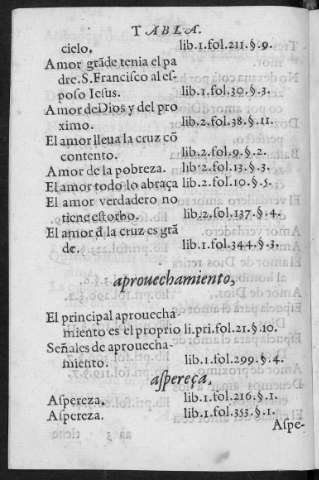 TABLA.
cielo, lib.1.fol.211.§.9.
Amor grãde tenia el pa
dre.S.Francisco al es-
poso Iesus. lib.1.fol.30.§.3.
Amor deDios y del pro
ximo. lib.2.fol.38.§.11.
El amor lleua la cruz cõ
contento. lib.2.fol.9.§.2.
Amor de la pobreza. lib.2.fol.13.§.3.
El amor todo lo abraça lib.2.fol.10.§.5.
El amor verdadero no
tiene estorbo. lib.2.fol.137.§.4.
El amor d̃ la cruz es grã
de. lib.1.fol.344.§.3.
aprouechamiento,
El principal aprouechã
miento es el proprio li.pri.fol.21.§.10.
Señales de aprouecha-
miento. lib.1.fol.299.§.4.
aspereça,
Aspereza, lib.1.fol.216.§.1.
Aspereza. lib.1.fol.353.§.1.
Aspe-